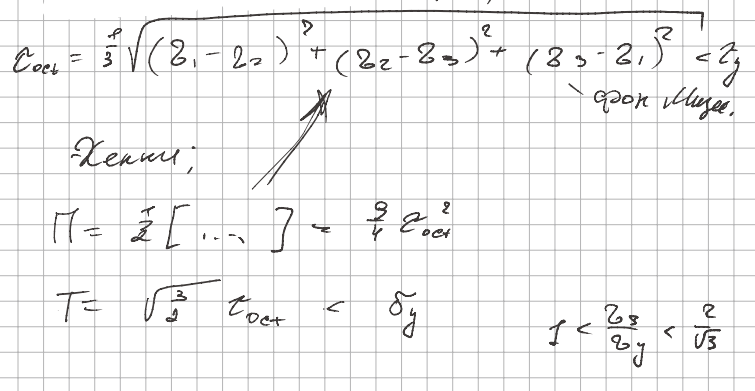 τ_oct = 1/3 √((σ₁ - σ₂)² + (σ₂ - σ₃)² + (σ₃ - σ₁)²) < τ_y
фон Мизес.
-Хенки;
П = 1/2 [ .... ] ~ 9/4 τ_oct²
T = √(3/2) τ_oct < σ_y
1 < σ₃/σ_y < 2/√3